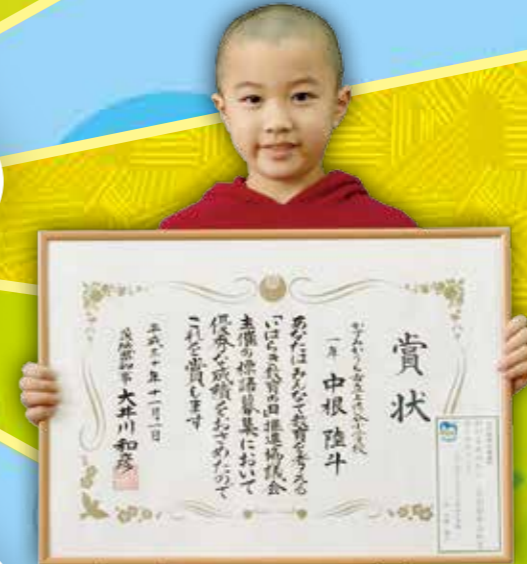 賞状
かすみがうら市立上佐谷小学校
一年 中根 陸斗
あなたはみんなで教育を考える
「いばらき教育の日」推進協議会
主催の標語募集において
優秀な成績をおさめたので
これを賞します
平成三十年十一月一日
茨城県知事 大井川 和彦